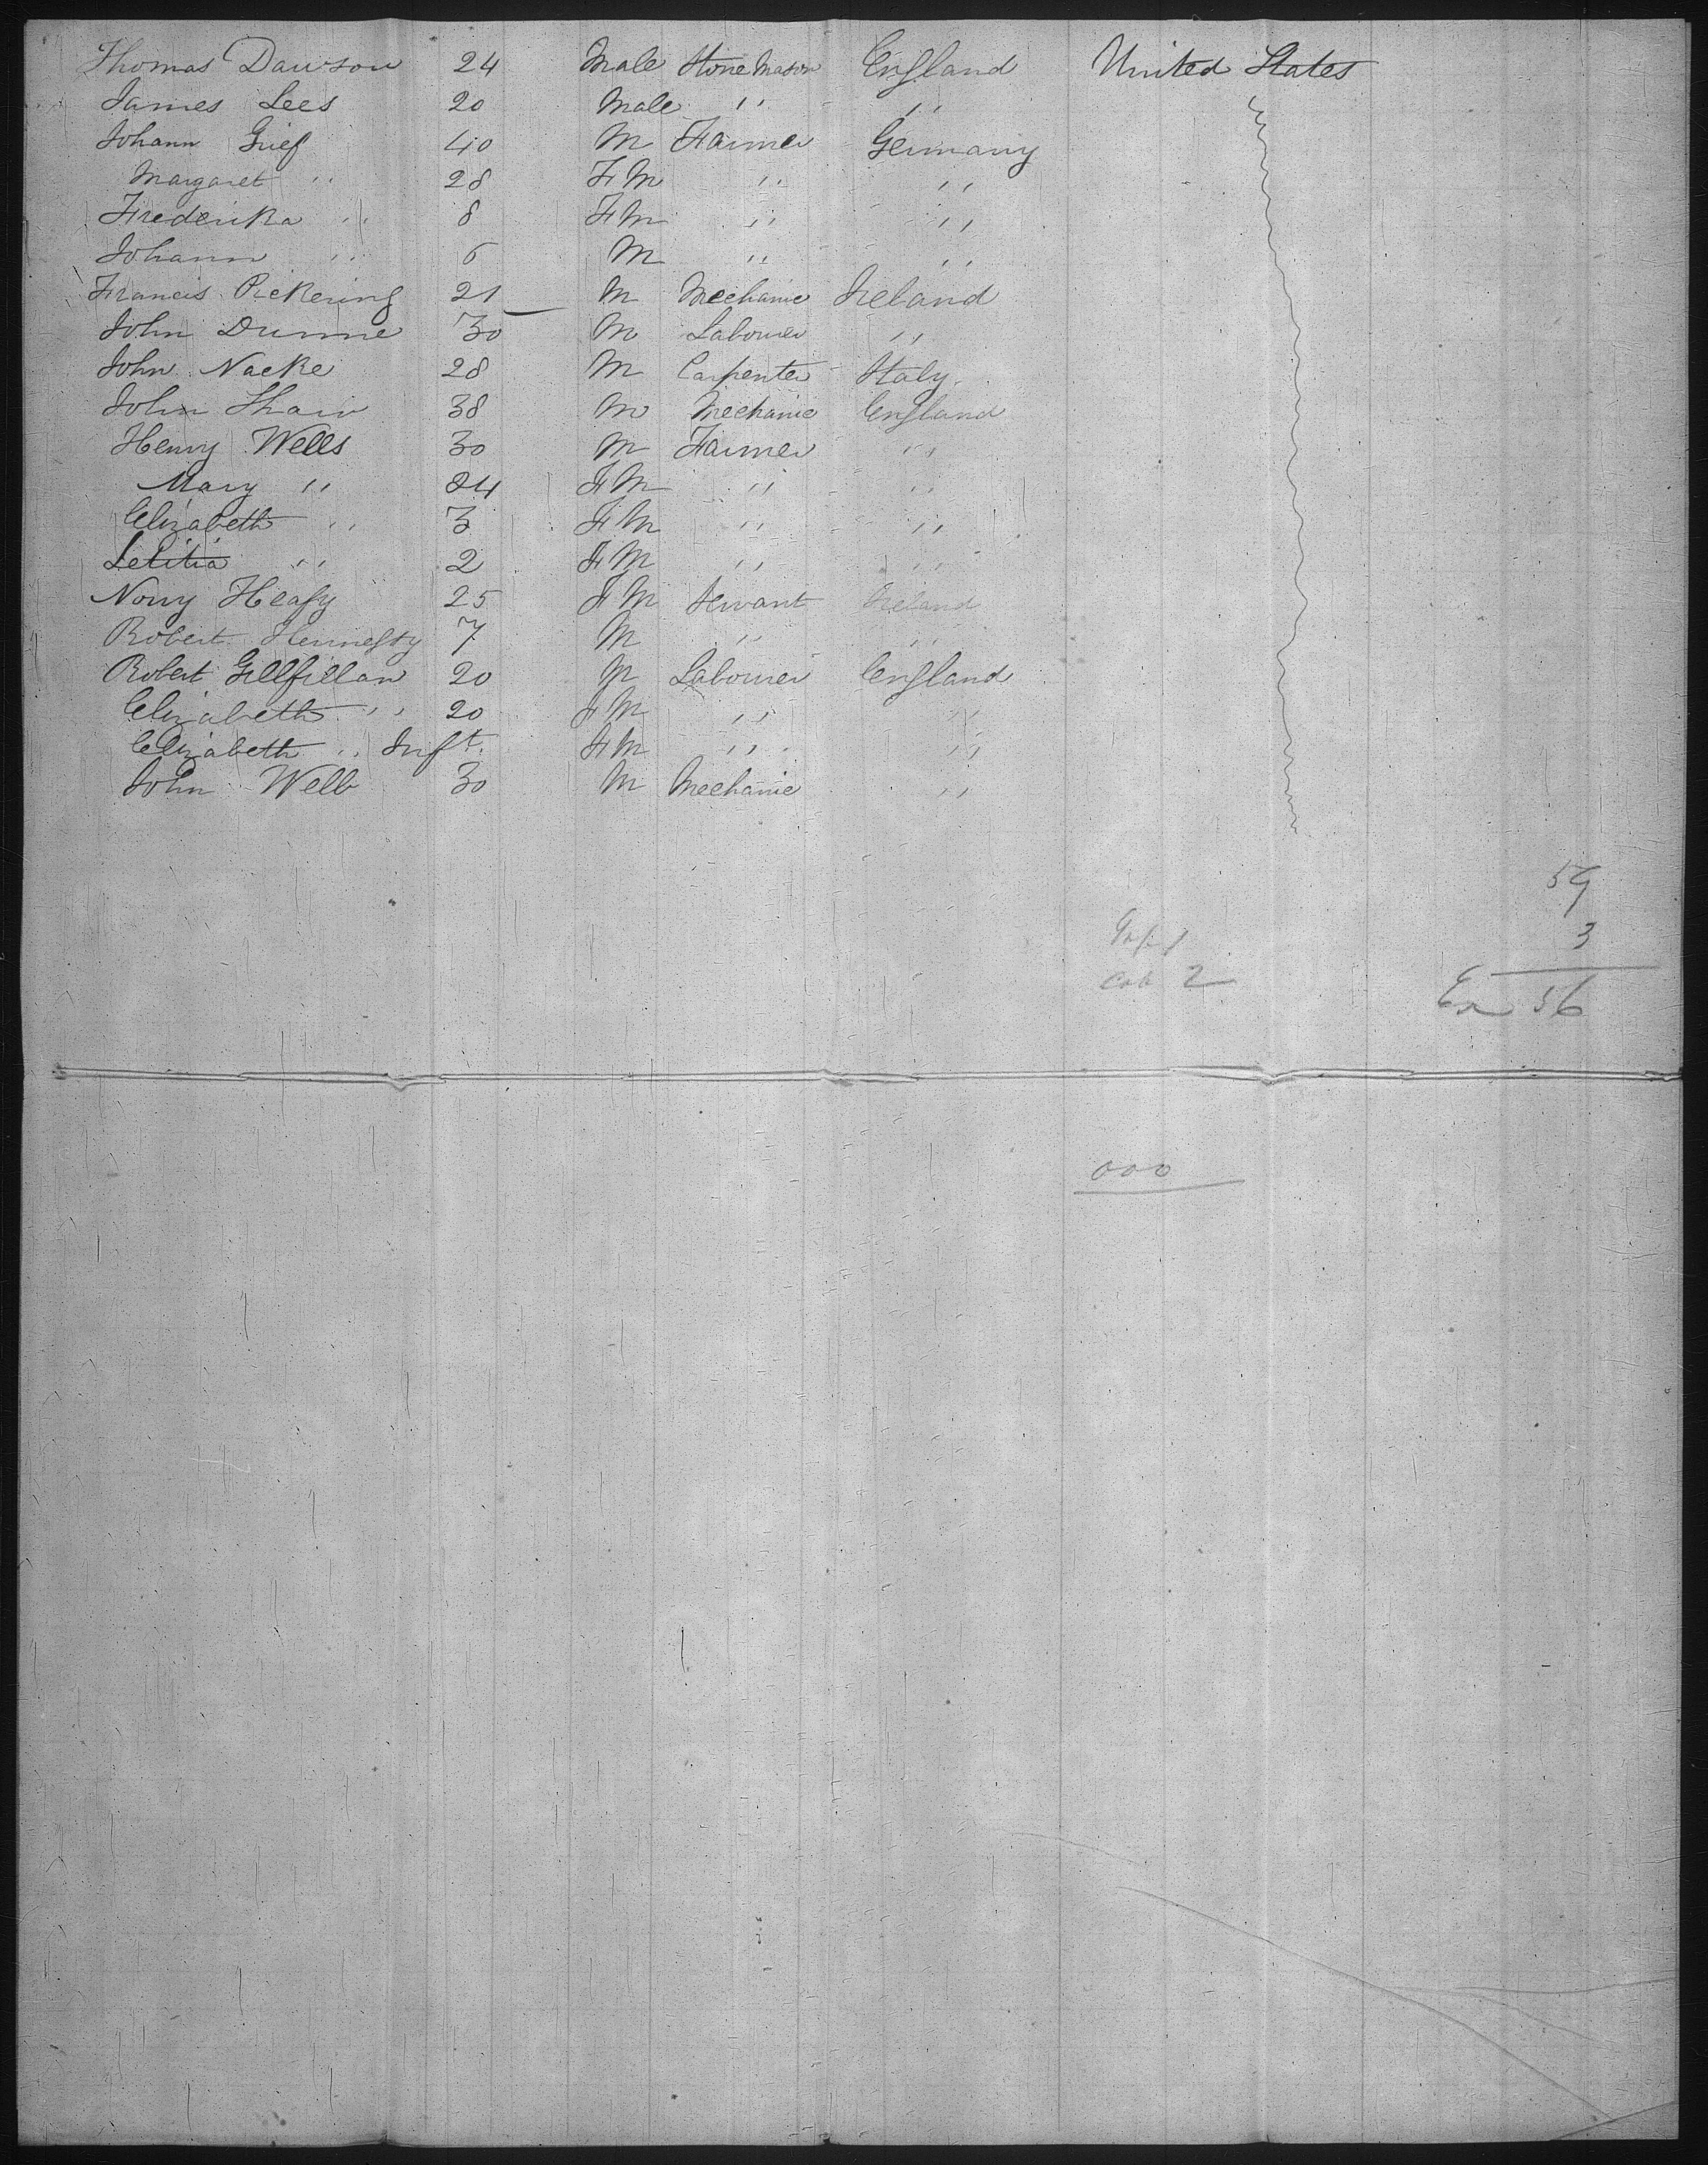 Thomas Dawson 24 Male Stone Mason England United States
James Lees 20 Male " "
Johann Grief 40 M Farmer Germany
Margaret " 28 F M " "
Frederika " 8 F M " "
Johann " 6 M " "
Francis Pickering 21 M Mechanic Ireland
John Dunne 30 M Labourer "
John Nacke 28 M Carpenter Italy
John Shaw 38 M Mechanic England
Henry Wells 30 M Farmer "
Mary " 24 F M " "
Elizabeth " 3 F M " "
Letitia " 2 F M " "
Nory Heafy 25 F M Servant Ireland
Robert Hennessy 7 M " "
Robert Gillfillan 20 M Labourer England
Elizabeth " 20 F M " "
Elizabeth " Inft. F M " "
John Webb 30 M Mechanic "
59
3
2
56
000